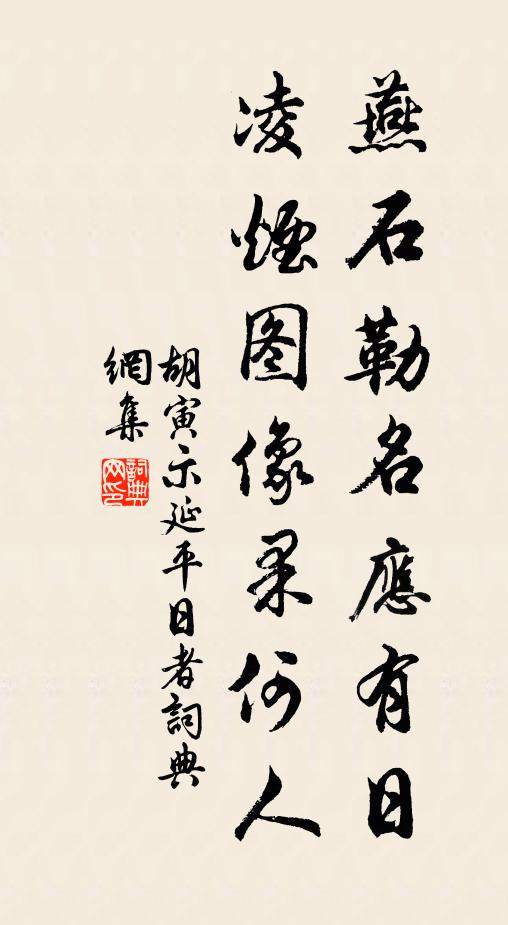 燕石勒名應有日
凌煙图像果何人
胡寅示延平日者詞典
網集
詞典网印